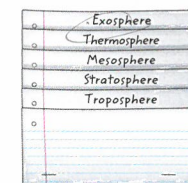 Exosphere
Thermosphere
Mesosphere
Stratosphere
Troposphere